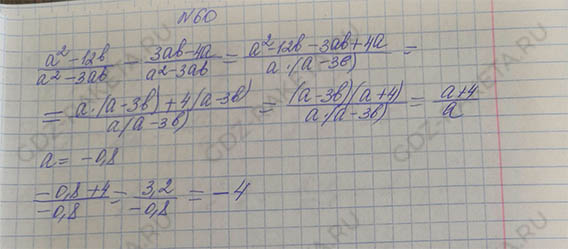 №60
(a² - 12b)/(a² - 3ab) - (3ab - 4a)/(a² - 3ab) = (a² - 12b - 3ab + 4a)/(a·(a - 3b)) =
= (a·(a - 3b) + 4(a - 3b))/(a(a - 3b)) = ((a - 3b)(a + 4))/(a·(a - 3b)) = (a + 4)/a
a = -0,8
(-0,8 + 4)/(-0,8) = 3,2/(-0,8) = -4
GDZ-RAKETA.RU